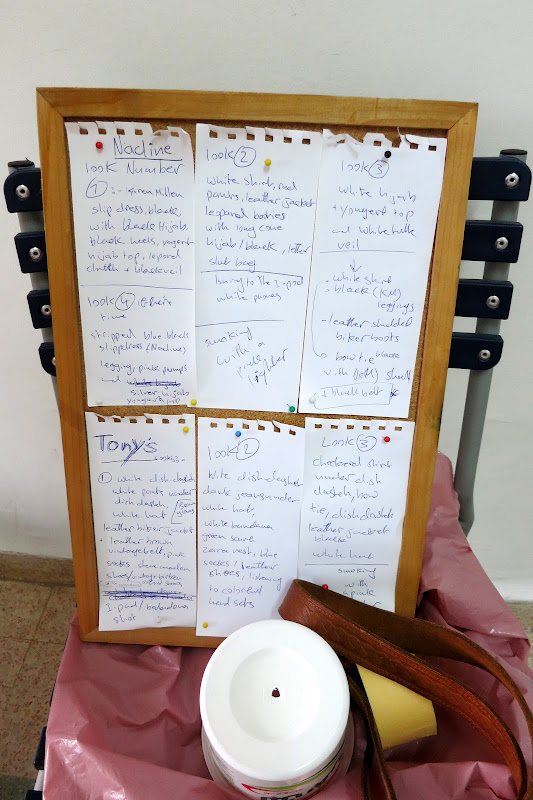 Nadine
look Number
① :- Karen Millen
slip dress, black
with black Hijab,
black heels, yogent
hijab top, leopord
clutch + black veil
look ④ if there is
time
stripped blue black
slippdress (Nadine)
legging, pink pumps
and
silver hijab
look ②
white shirt, red
pants, leather jacket
leopard bodies
with long cone
hijab / black, lether
slub bag
lising to the I-pod
white phones
smoking
with a
pink
lighter
look ③
white hijab
+ yougert top
and white tulle
veil
- white shirt
- black (KM)
leggings
- leather studded
biker boots
bow tie black
with (left) shoulder
+ black hat
Tony's
looks :-
① white dish dasheh
white pants under
dish dasheh,
white hat
leather biker jacket
+ leather brown
vintage belt, pink
socks steve madden
shoes/vintage biker
I-pad / bandana
shot
look ②
Wite dish dasheh
dark jeans under
white hat,
white bandana
green
zara vest, blue
socks / leather
shoes, listening
to colorful
head sets
Look ③
checkered shirt
under dish
dasheh, bow
tie, dish dasheh
leather jacket
black
white hat
smoking
with
a pink